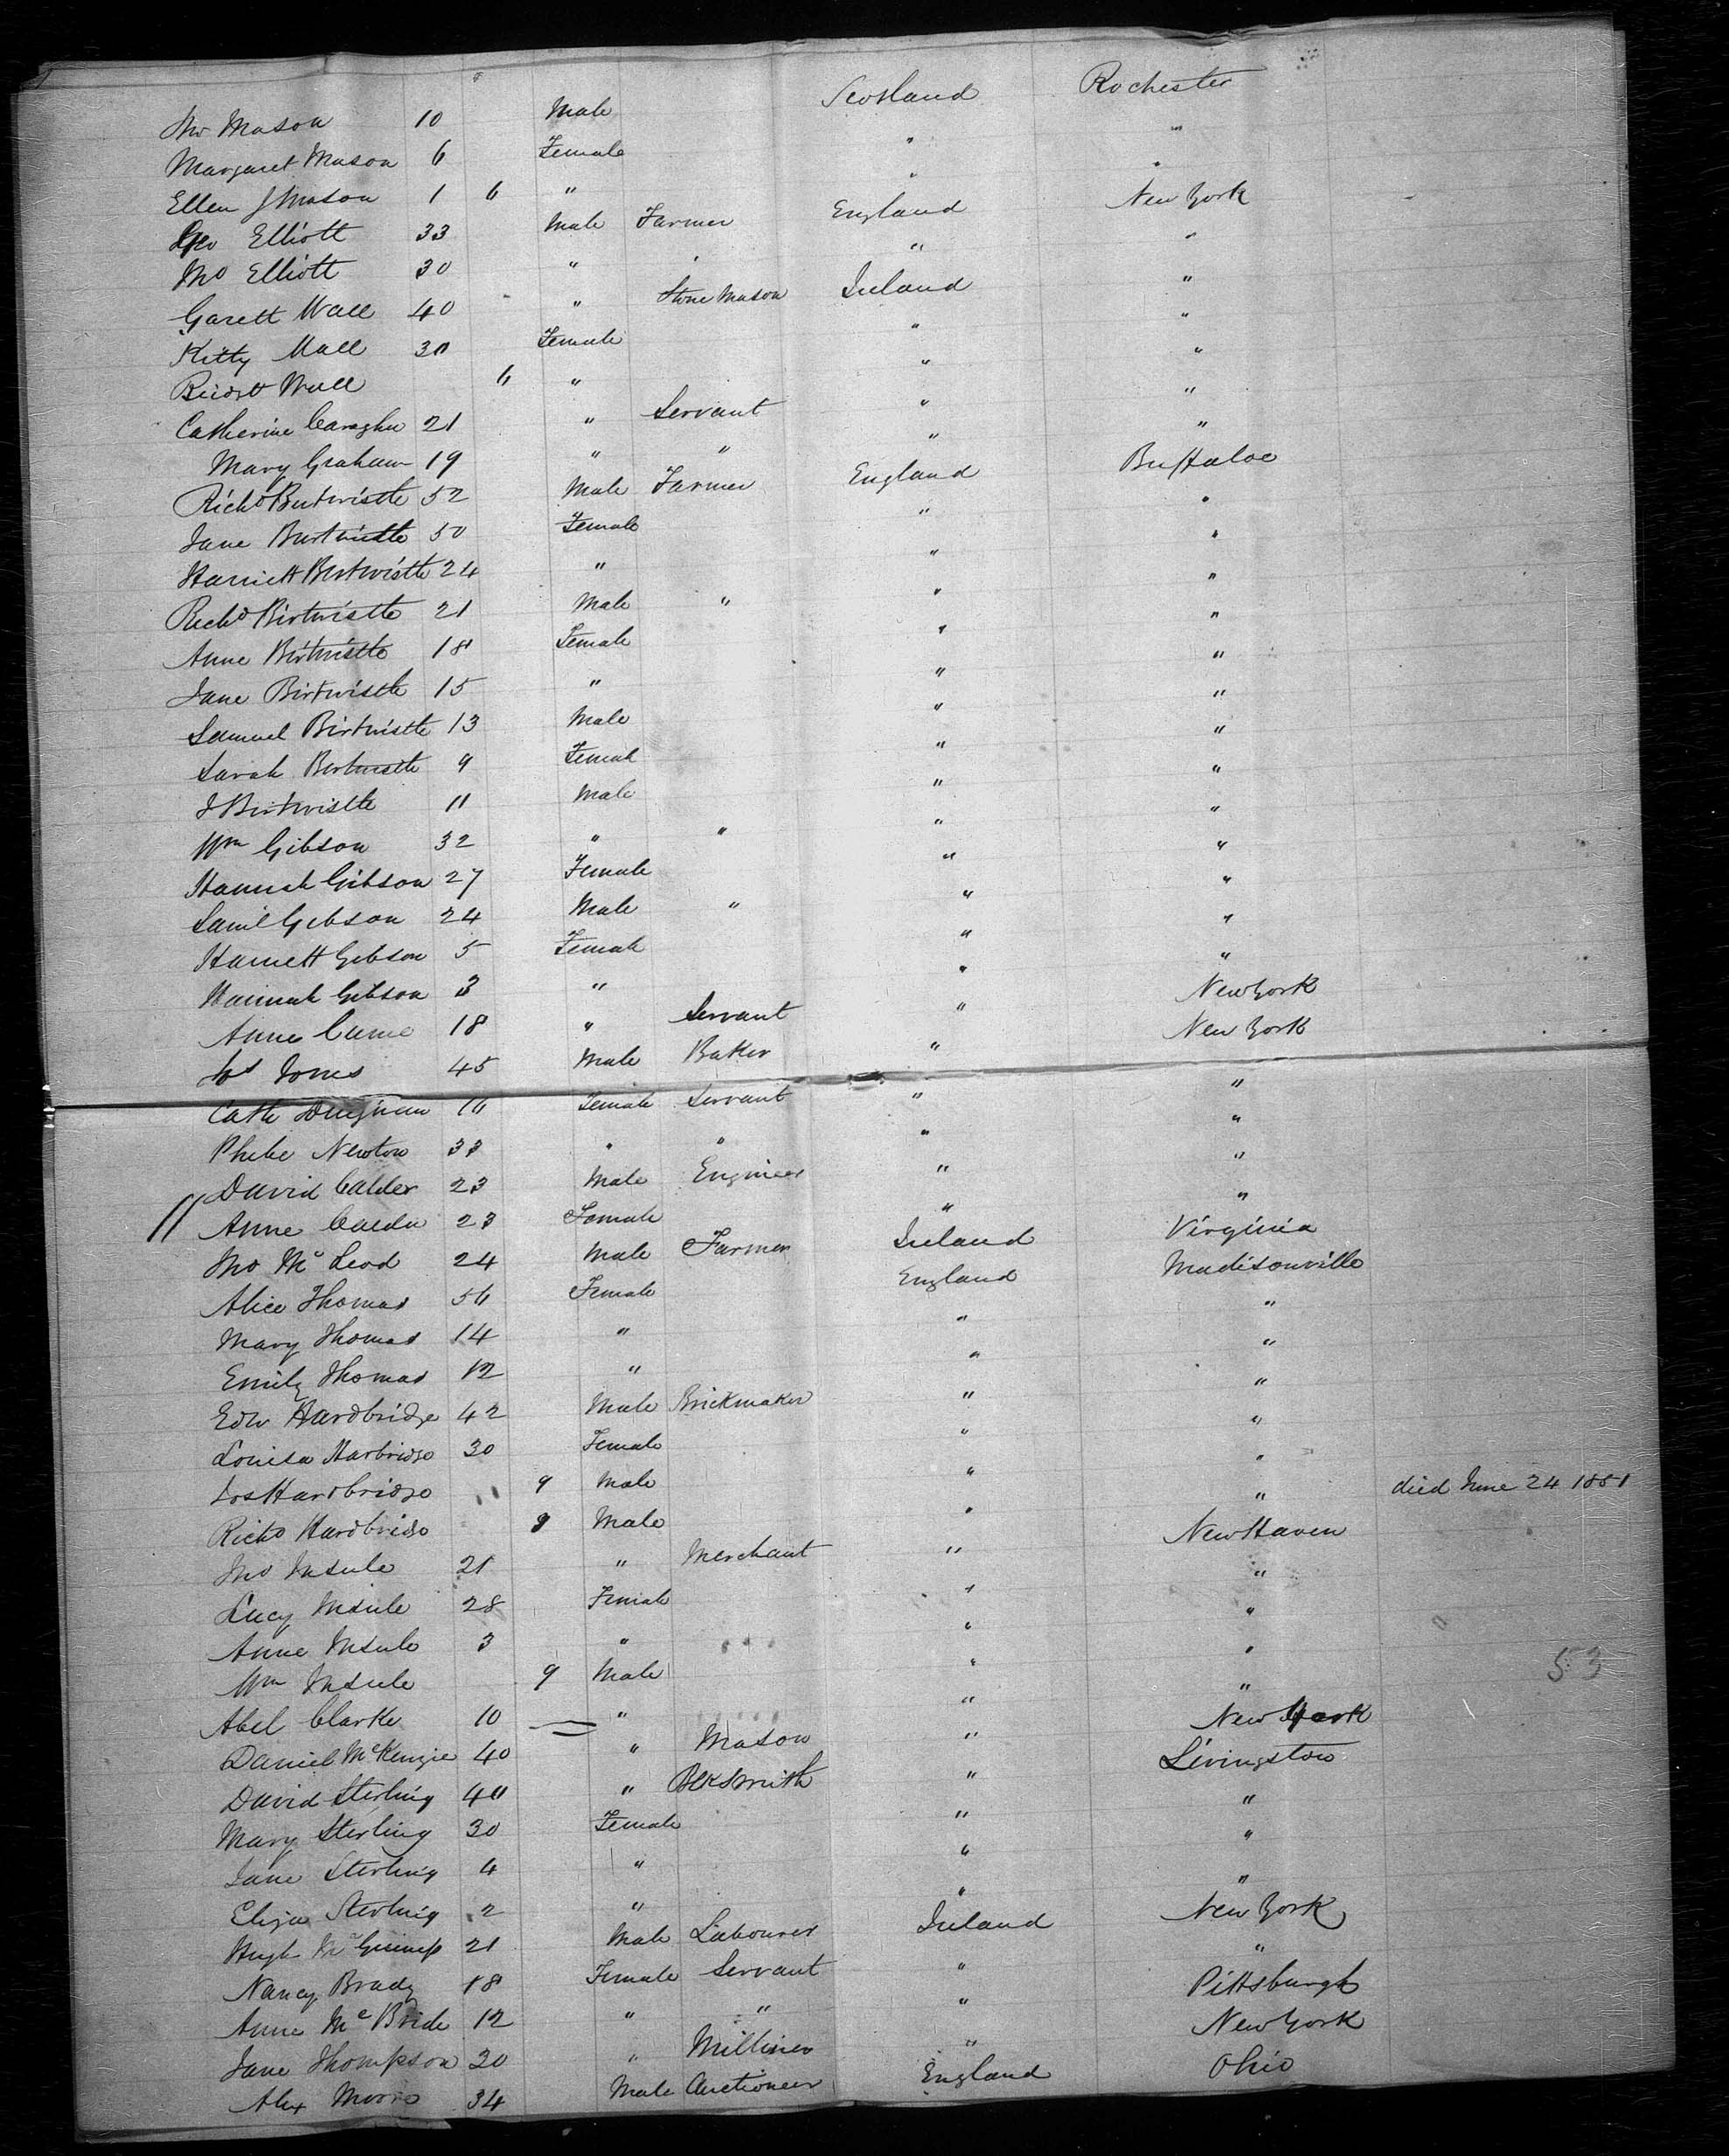 Jno Mason 10 Male Scotland Rochester
Margaret Mason 6 Female " "
Ellen J Mason 1 6 " " "
Geo Elliott 33 Male Farmer England New York
Jno Elliott 30 " " " "
Garett Wall 40 " Stone Mason Ireland "
Kitty Wall 30 Female " "
Bridgt Wall 6 " " "
Catherine 21 " Servant " "
Mary Graham 19 " " " "
Richd Birtwistle 52 Male Farmer England Buffaloe
Jane Birtwistle 50 Female " "
Harriett Birtwistle 24 " " "
Richd Birtwistle 21 Male " " "
Anne Birtwistle 18 Female " "
Jane Birtwistle 15 " " "
Samuel Birtwistle 13 Male " "
Sarah Birtwistle 9 Female " "
J Birtwistle 11 Male " "
Wm Gibson 32 " " " "
Hannah Gibson 27 Female " "
Saml Gibson 24 Male " " "
Harriett Gibson 5 Female " "
Hannah Gibson 3 " " "
Anne 18 " Servant " New York
Jones 45 Male Baker " New York
Cath 16 Female Servant " "
Phebe Newton 33 " " " "
David Calder 23 Male Engineer " "
// Anne Calder 23 Female " "
Jno McLeod 24 Male Farmer Ireland Virginia
Alice Thomas 56 Female England Madisonville
Mary Thomas 14 " " "
Emily Thomas 12 " " "
Edw Hardbridge 42 Male Brickmaker " "
Louisa Harbridge 30 Female " "
Jos Hardbridge 9 Male " "
Richd Hardbridge 9 Male " " died June 24 1851
Jno Insule 21 " Merchant " New Haven
Lucy Insule 28 Female " "
Anne Insule 3 " " "
Wm Insule 9 Male " "
53
Abel Clarke 10 " " "
Daniel McKenzie 40 " Mason " New York
David Sterling 40 " Blksmith " Livingston
Mary Sterling 30 Female " "
Jane Sterling 4 " " "
Eliza Sterling 2 " " "
Hugh 21 Male Labourer Ireland New York
Nancy Brady 18 Female Servant " "
Anne McBride 12 " " " Pittsburgh
Jane Thompson 20 " Milliner " New York
Alex Moore 34 Male Auctioneer England Ohio